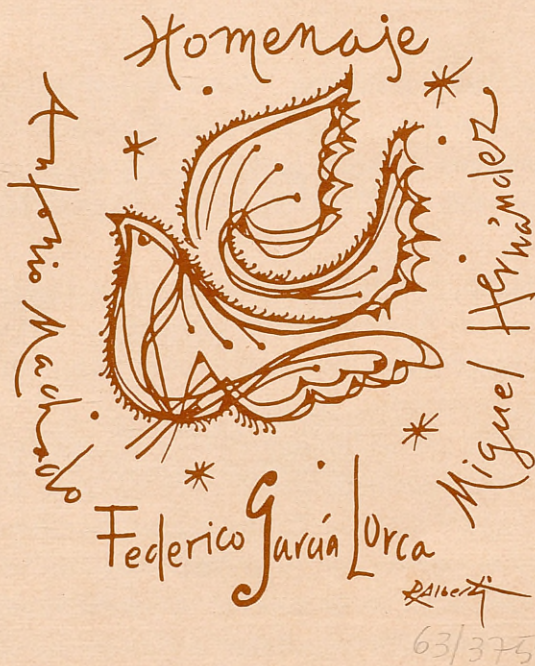 Homenaje
Antonio Machado
Miguel Hernández
Federico García Lorca
R Alberti
63/375